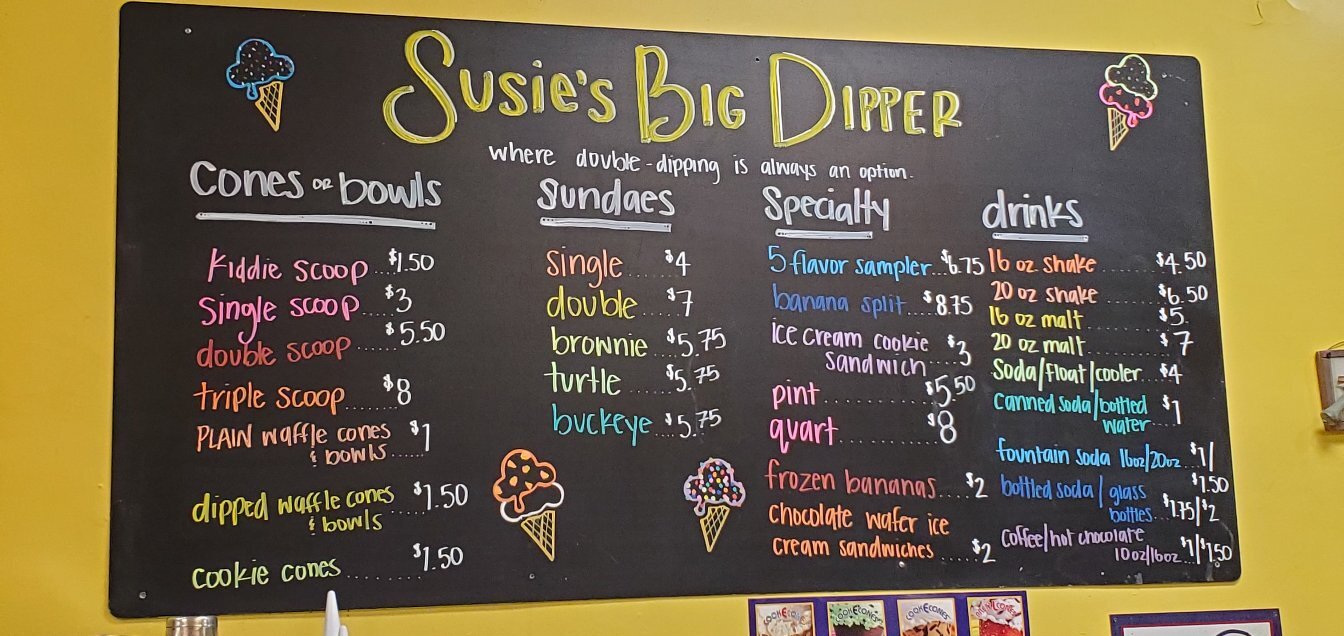 Susie's Big Dipper
where double-dipping is always an option.
Cones or bowls
Kiddie scoop...$1.50
single scoop...$3
double scoop......$5.50
triple scoop.......$8
PLAIN waffle cones
& bowls.....$1
dipped waffle cones
& bowls.....$1.50
cookie cones........$1.50
Sundaes
single....$4
double....$7
brownie..$5.75
turtle....$5.75
buckeye..$5.75
Specialty
5 flavor sampler..$6.75
banana split..$8.75
ice cream cookie
sandwich...$3
pint...........$5.50
quart.........$8
frozen bananas....$2
chocolate wafer ice
cream sandwiches....$2
drinks
16 oz shake.......$4.50
20 oz shake.......$6.50
16 oz malt........$5
20 oz malt........$7
Soda/float/cooler..$4
canned soda/bottled
water...$1
fountain soda 16oz/20oz..$1/
$1.50
bottled soda/glass
bottles...$1.75/$2
coffee/hot chocolate
10oz/16oz..$1/$1.50
COOKECONES
COOKECONES